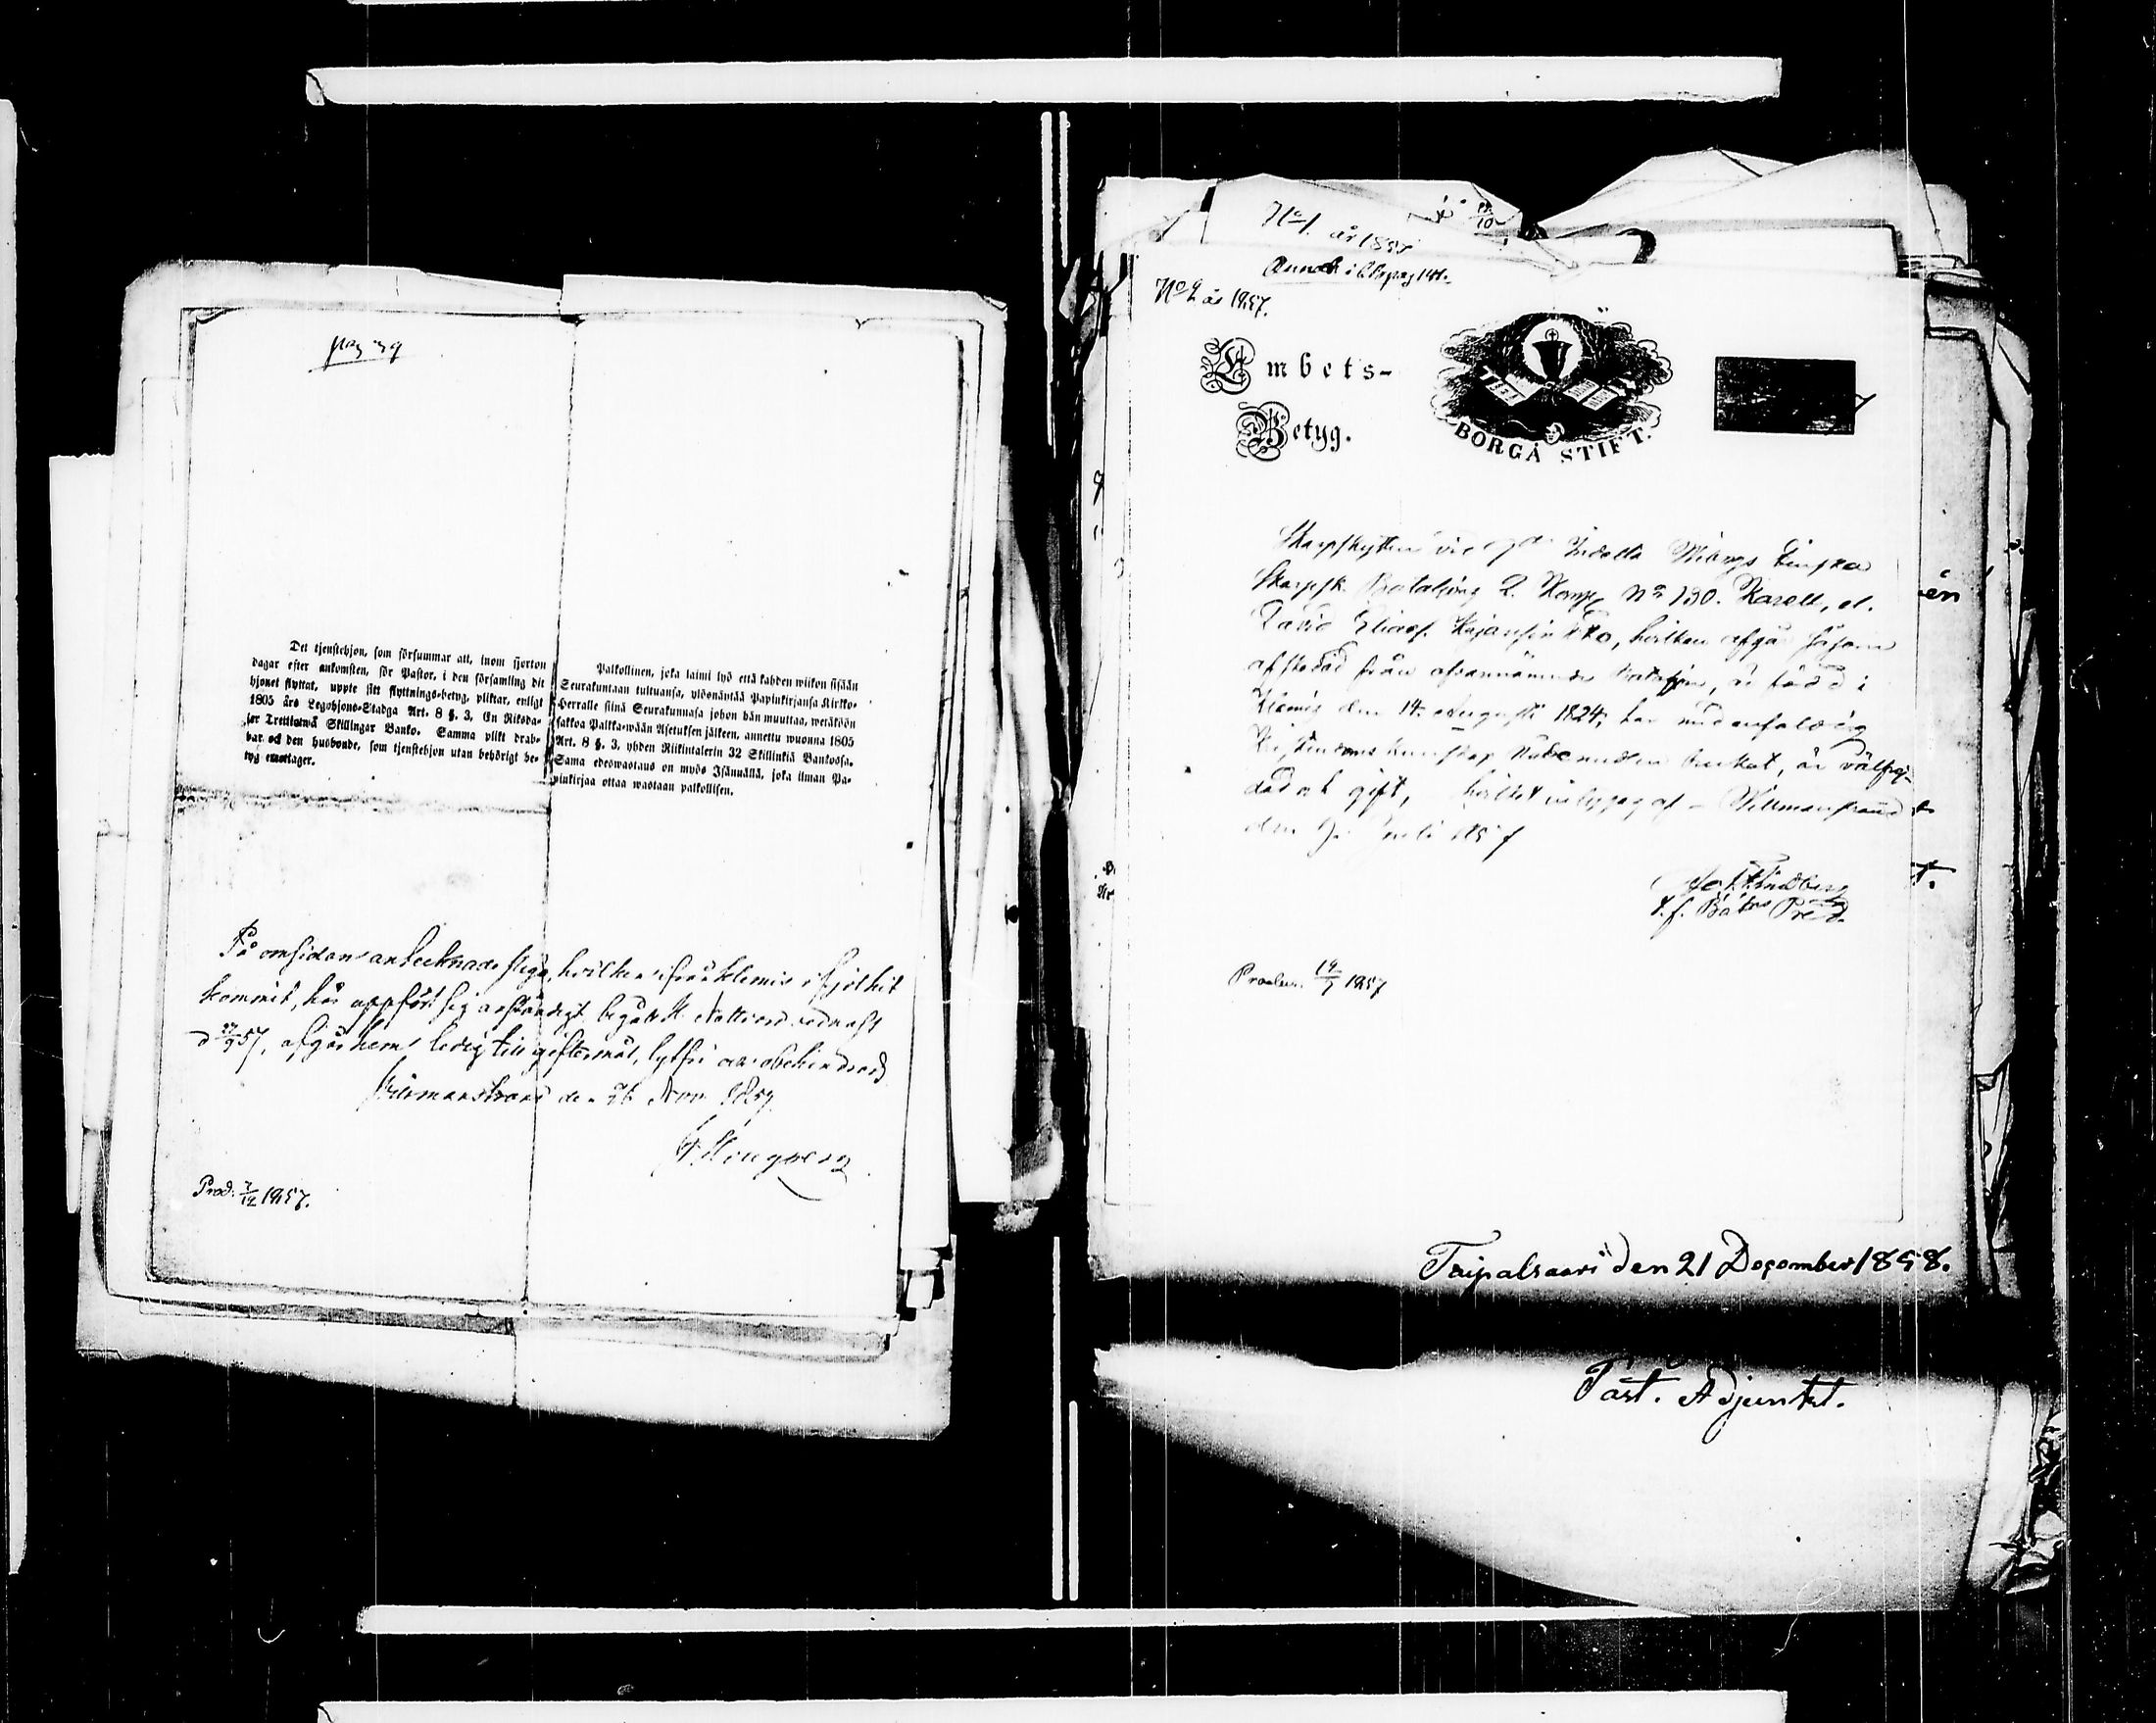 pag 29
Det tjenstehjon, som försummar att, inom fjorton
dagar efter ankomsten, för Pastor, i den församling dit
hjonet flyttat, uppte sitt flyttnings-betyg, pliktar, enligt
1805 års Legohjons-Stadga Art. 8 §. 3, En Riksda-
ler Trettiotwå Skillingar Banko. Samma plikt drab-
bar ock den husbonde, som tjenstehjon utan behörigt be-
tyg emottager.
Palkollinen, joka laimi lyö että kahden wiikon sisään
Seurakuntaan tultuansa, ylösnäyttää Papinkirjansa Kirkko-
Herralle siinä Seurakunnasa johon hän muuttaa, wetäköön
sakkoa Palkka-wään Asetuksen jälkeen, annettu wuonna 1805
Art. 8 §. 3, yhden Riikintalerin 32 Skillinkiä Bankossa.
Sama edeswastaus on myös Isännällä, joka ilman Pa-
pinkirjaa ottaa wastaan palkollisen.
På omsidan antecknade piga, hvilken ifrån Klemis i fjol hit
kommit, har uppfört sig anständigt begått H. Nattvard sednast
d 57, afgår hem ledig till giftermål, lytfri och obehindrad
Wilmanstrand den 26 Nov. 1857.
Prod. 7/12 1857.
No 1. år 1857
No 2 år 1857.
Embets-
Betyg.
BORGÅ STIFT.
Skarpskytten vid Indelta Finska
Skarpsk. Bataljong 2. Komp. No 130. Karell, el.
David Eliass. hvilken afgår såsom
afskedad från ofvannämnde Bataljon, är född i
Klemis den 14. Augusti 1824, har
Kristendoms kunskap Nattvarden brukat, är
dad och gift, hvilket intygas af Willmanstrand
den Juli 1857
Lindberg
t.f. Bat:s Pred.
Produc. 19/7 1857
Taipalsaari den 21 December 1858.
Past. Adjunkt.